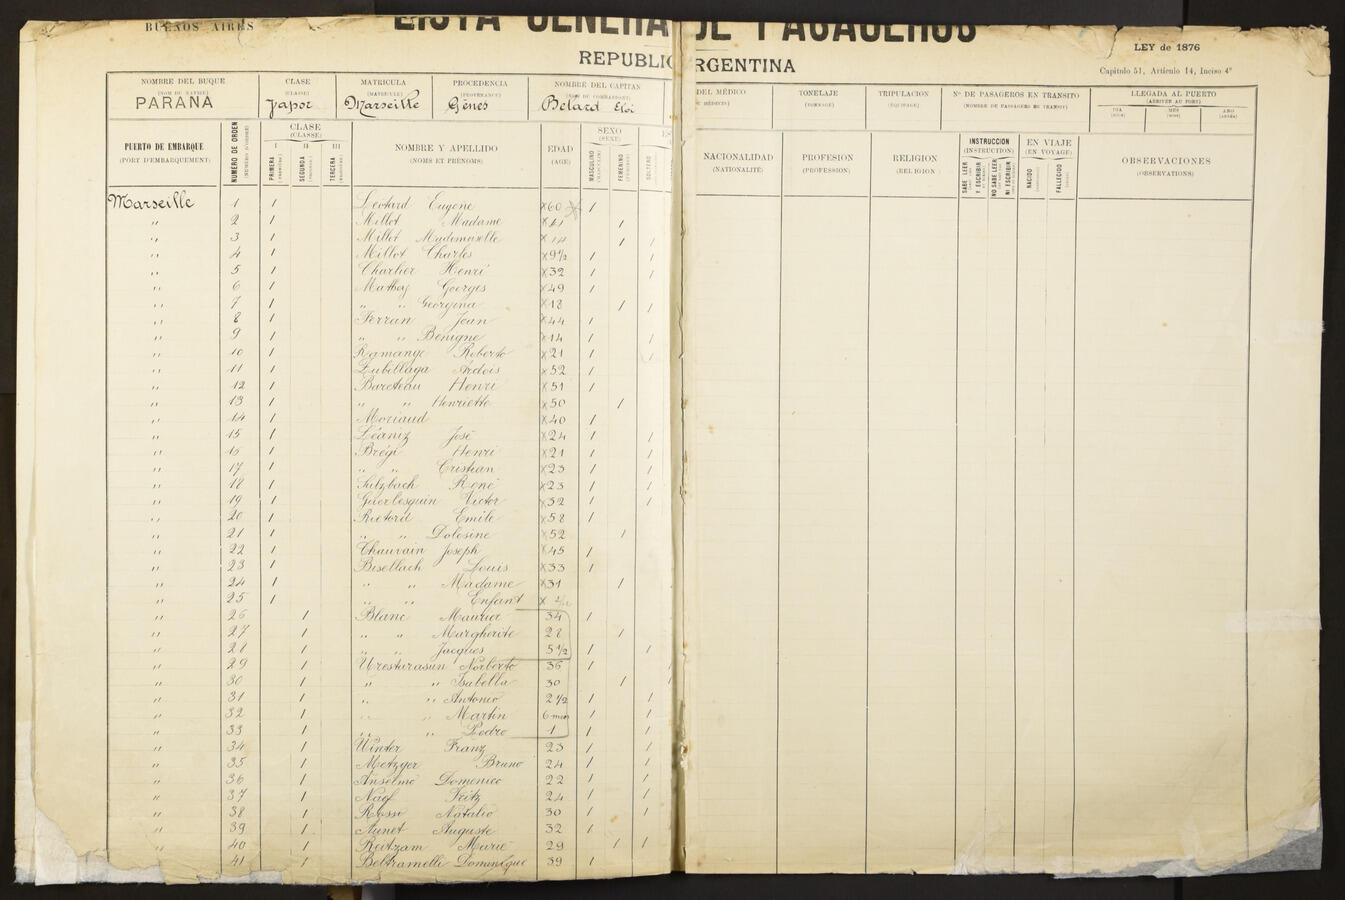 BUENOS AIRES
LISTA GENERAL DE PASAGEROS
REPUBLIC ARGENTINA
LEY de 1876
Capítulo 51, Artículo 14, Inciso 4º
NOMBRE DEL BUQUE
(NOM DU NAVIRE)
PARANA
CLASE
(CLASSE)
Vapor
MATRICULA
(MATRICULE)
Marseille
PROCEDENCIA
(PROVENANCE)
Gênes
NOMBRE DEL CAPITAN
(NOM DU COMMANDANT)
Belard Eloi
DEL MÉDICO
MÉDECIN)
TONELAJE
(TONNAGE)
TRIPULACION
(ÉQUIPAGE)
Nº DE PASAGEROS EN TRANSITO
(NOMBRE DE PASSAGERS EN TRANSIT)
LLEGADA AL PUERTO
(ARRIVÉE AU PORT)
DIA
(JOUR)
MES
(MOIS)
AÑO
(ANNÉE)
PUERTO DE EMBARQUE
(PORT D'EMBARQUEMENT)
NUMERO DE ORDEN
(NUMÉRO D'ORDRE)
CLASE
(CLASSE)
I II III
PRIMERA
SEGUNDA
TERCERA
NOMBRE Y APELLIDO
(NOMS ET PRÉNOMS)
EDAD
(AGE)
SEXO
(SEXE)
MASCULINO
FEMENINO
ES
SOLTERO
NACIONALIDAD
(NATIONALITÉ)
PROFESION
(PROFESSION)
RELIGION
(RELIGION)
INSTRUCCION
(INSTRUCTION)
SABE LEER Y ESCRIBIR
NO SABE LEER NI ESCRIBIR
EN VIAJE
(EN VOYAGE)
NACIDO
FALLECIDO
OBSERVACIONES
(OBSERVATIONS)
Marseille 1 / Leotard Eugene x60 /
" 2 / Millot Madame x41 /
" 3 / Millot Mademoiselle x14 / /
" 4 / Millot Charles x9½ / /
" 5 / Chartier Henri x32 / /
" 6 / Mathey Georges x49 /
" 7 / " " Georgina x18 / /
" 8 / Ferran Jean x44 /
" 9 / " " Benigne x14 / /
" 10 / Ramange Roberto x21 / /
" 11 / Zubillaga x52 /
" 12 / Bareteau Henri x51 /
" 13 / " " Henriette x50 /
" 14 / Moriaud x40 /
" 15 / Léaniz José x24 / /
" 16 / Brégi Henri x21 / /
" 17 / " " Cristian x23 / /
" 18 / Sulzbach René x23 / /
" 19 / Guerlesquin Victor x32 / /
" 20 / Rietord Emile x58 /
" 21 / " " Dolosine x52 /
" 22 / Chauvain Joseph x45 /
" 23 / Bisellach Louis x33 /
" 24 / " " Madame x31 /
" 25 / " " Enfant x
" 26 / Blanc Maurice 34 /
" 27 / " " Margherite 28 /
" 28 / " " Jacques 5½ / /
" 29 / Urestarasun Norberto 36 / /
" 30 / " " Isabella 30 / /
" 31 / " " Antonio 2½ / /
" 32 / " " Martin 6 mois / /
" 33 / " " Pedro 1 / /
" 34 / Winter Franz 23 / /
" 35 / Metzger Bruno 24 / /
" 36 / Anselmo Domenico 22 / /
" 37 / Naef Fritz 24 / /
" 38 / Rosso Natalio 30 / /
" 39 / Aunet Auguste 32 /
" 40 / Reitzam Marie 29 / /
" 41 / Beltramelli Dominique 39 /